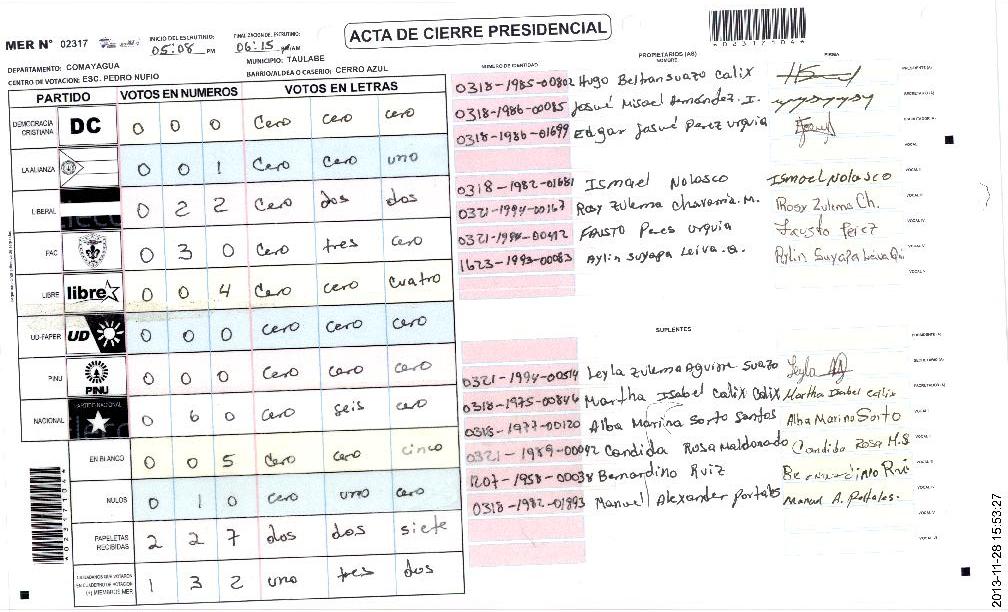 MER N° 02317
INICIO DEL ESCRUTINIO: 05:08 PM
FINALIZACION DEL ESCRUTINIO: 06:15 PM
ACTA DE CIERRE PRESIDENCIAL
DEPARTAMENTO: COMAYAGUA
MUNICIPIO: TAULABE
CENTRO DE VOTACION: ESC. PEDRO NUFIO
BARRIO/ALDEA O CASERIO: CERRO AZUL
PARTIDO VOTOS EN NUMEROS VOTOS EN LETRAS
DEMOCRACIA CRISTIANA DC 0 0 0 Cero cero cero
LA ALIANZA 0 0 1 Cero Cero uno
LIBERAL 0 2 2 Cero dos dos
PAC 0 3 0 Cero tres cero
LIBRE libre 0 0 4 Cero cero cuatro
UD-FAPER UD 0 0 0 Cero cero cero
PINU PINU 0 0 0 cero cero cero
NACIONAL 0 6 0 cero seis cero
EN BLANCO 0 0 5 cero cero cinco
NULOS 0 1 0 cero uno cero
PAPELETAS RECIBIDAS 2 2 7 dos dos siete
CIUDADANOS QUE VOTARON EN CUADERNO DE VOTACION (+) MIEMBROS MER 1 3 2 uno tres dos
NUMERO DE IDENTIDAD
PROPIETARIOS (AS)
NOMBRE
FIRMA
0318-1985-00802 Hugo Beltran suazo Calix
0318-1986-00085 Josué Misael Hernández. I.
0318-1986-01699 Edgar Josué Perez urquia
0318-1982-01681 Ismael Nolasco Ismael Nolasco
0321-1994-00167 Rosy Zulema Chavarria. M. Rosy Zulema Ch.
FAUSTO Peres urquia Fausto Pérez
1623-1993-00083 Aylin Suyapa Leiva. Q. Aylin Suyapa Leiva
SUPLENTES
0321-1994-00514 Leyla Zulema Aguirre Suazo Leyla
0318-1975-00846 Martha Isabel Calix Calix Martha Isabel calix
0318-1977-00120 Alba Marina Sorto Santos Alba Marina Sorto
0321-1989-00092 Candida Rosa Maldonado Candida Rosa M.S
1207-1958-00038 Bernardino Ruiz
0318-1982-01893 Manuel Alexander Portales Manuel A. Portales.
2013-11-28 15:53:27